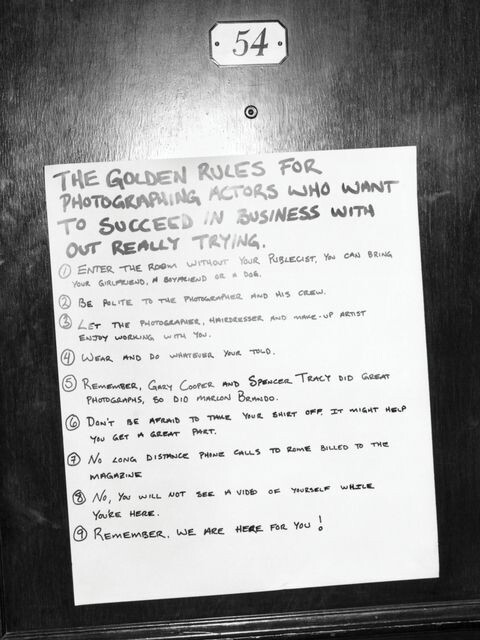 54
THE GOLDEN RULES FOR
PHOTOGRAPHING ACTORS WHO WANT
TO SUCCEED IN BUSINESS WITH
OUT REALLY TRYING.
① ENTER THE ROOM WITHOUT YOUR PUBLECIST, YOU CAN BRING
YOUR GIRLFRIEND, A BOYFRIEND OR A DOG.
② BE POLITE TO THE PHOTOGRAPHER AND HIS CREW.
③ LET THE PHOTOGRAPHER, HAIRDRESSER AND MAKE-UP ARTIST
ENJOY WORKING WITH YOU.
④ WEAR AND DO WHATEVER YOUR TOLD.
⑤ REMEMBER, GARY COOPER AND SPENCER TRACY DID GREAT
PHOTOGRAPHS, SO DID MARLON BRANDO.
⑥ DON'T BE AFRAID TO TAKE YOUR SHIRT OFF. IT MIGHT HELP
YOU GET A GREAT PART.
⑦ NO LONG DISTANCE PHONE CALLS TO ROME BILLED TO THE
MAGAZINE
⑧ NO, YOU WILL NOT SEE A VIDEO OF YOURSELF WHILE
YOU'RE HERE.
⑨ REMEMBER, WE ARE HERE FOR YOU!